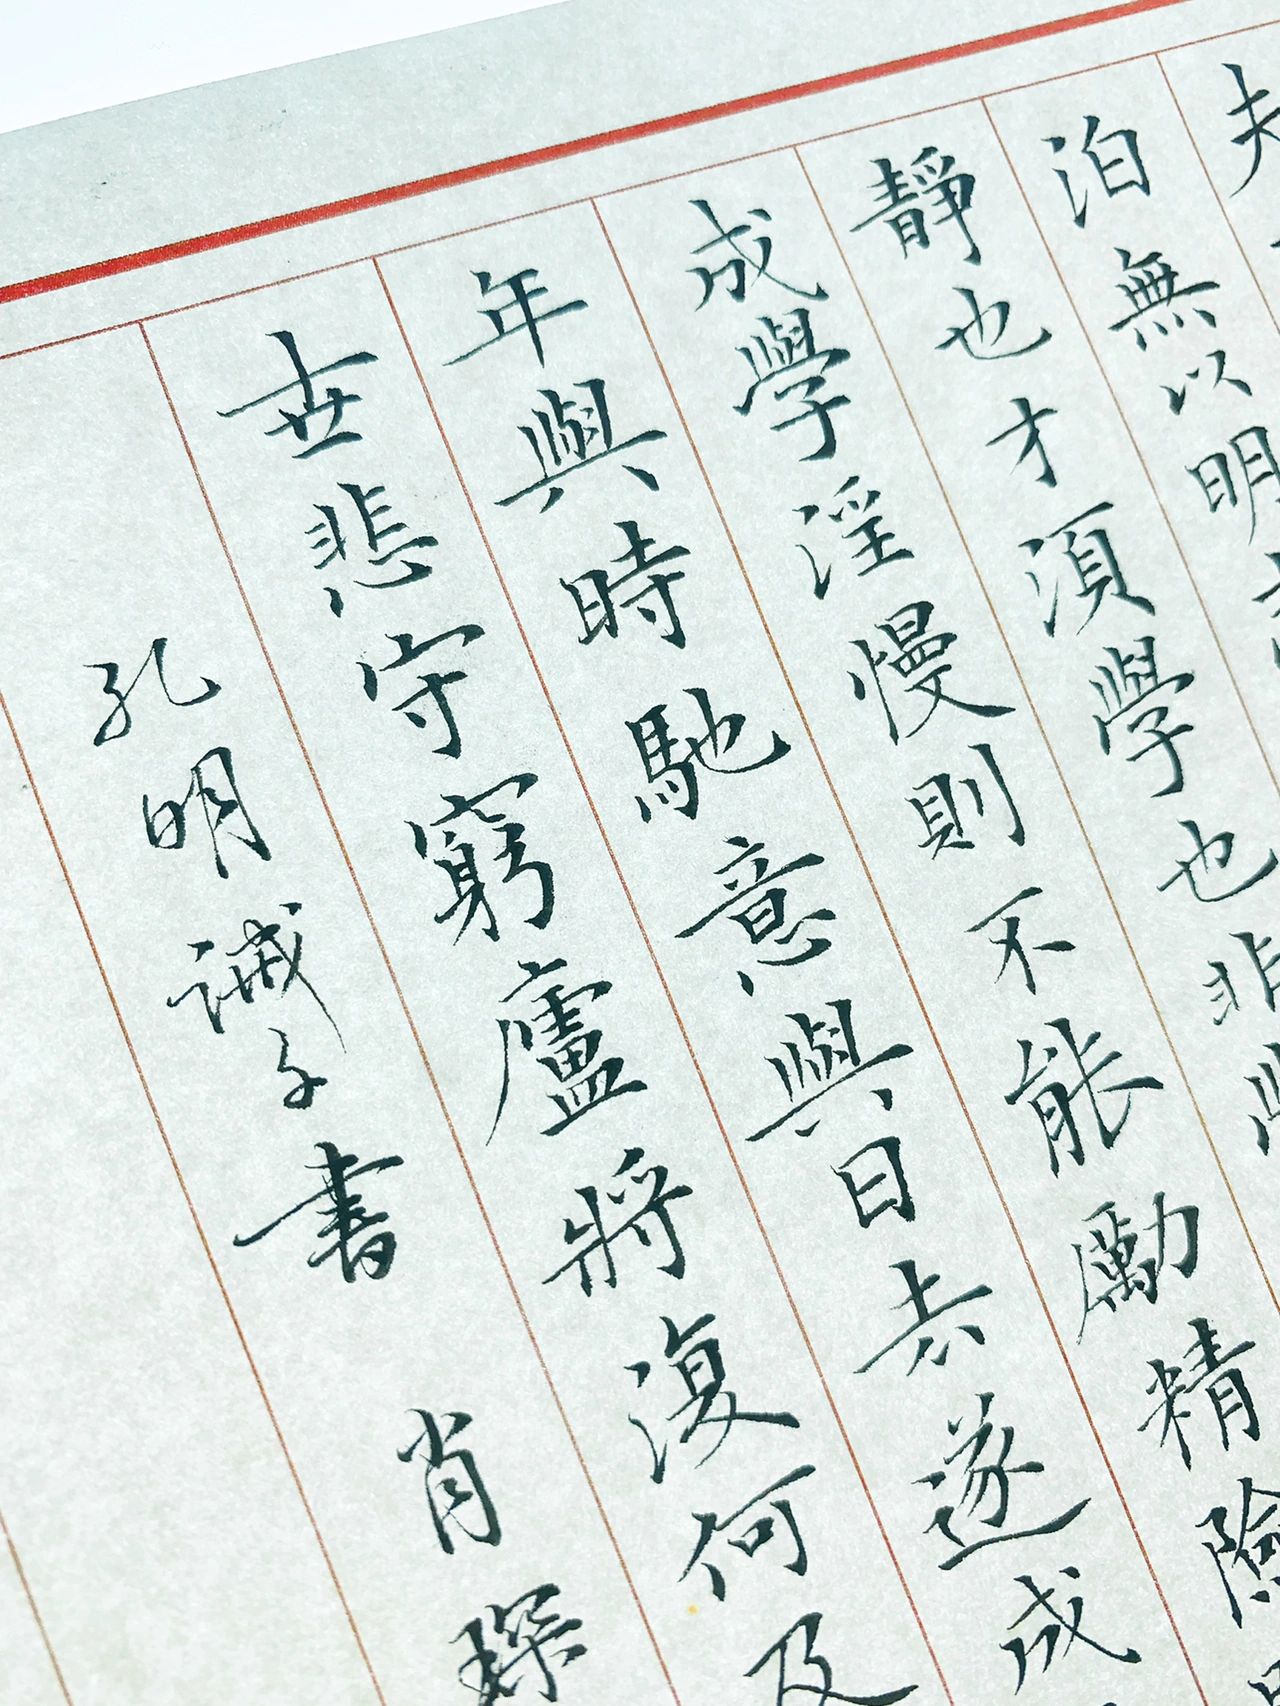 夫
泊無以明
靜也才須學也非學
成學淫慢則不能勵精險
年與時馳意與日去遂成
世悲守窮廬將復何及
孔明誡子書 肖琛